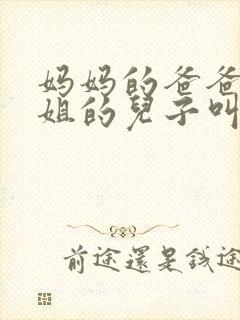 妈妈的爸爸
姐的兒子叫
前途還是錢途